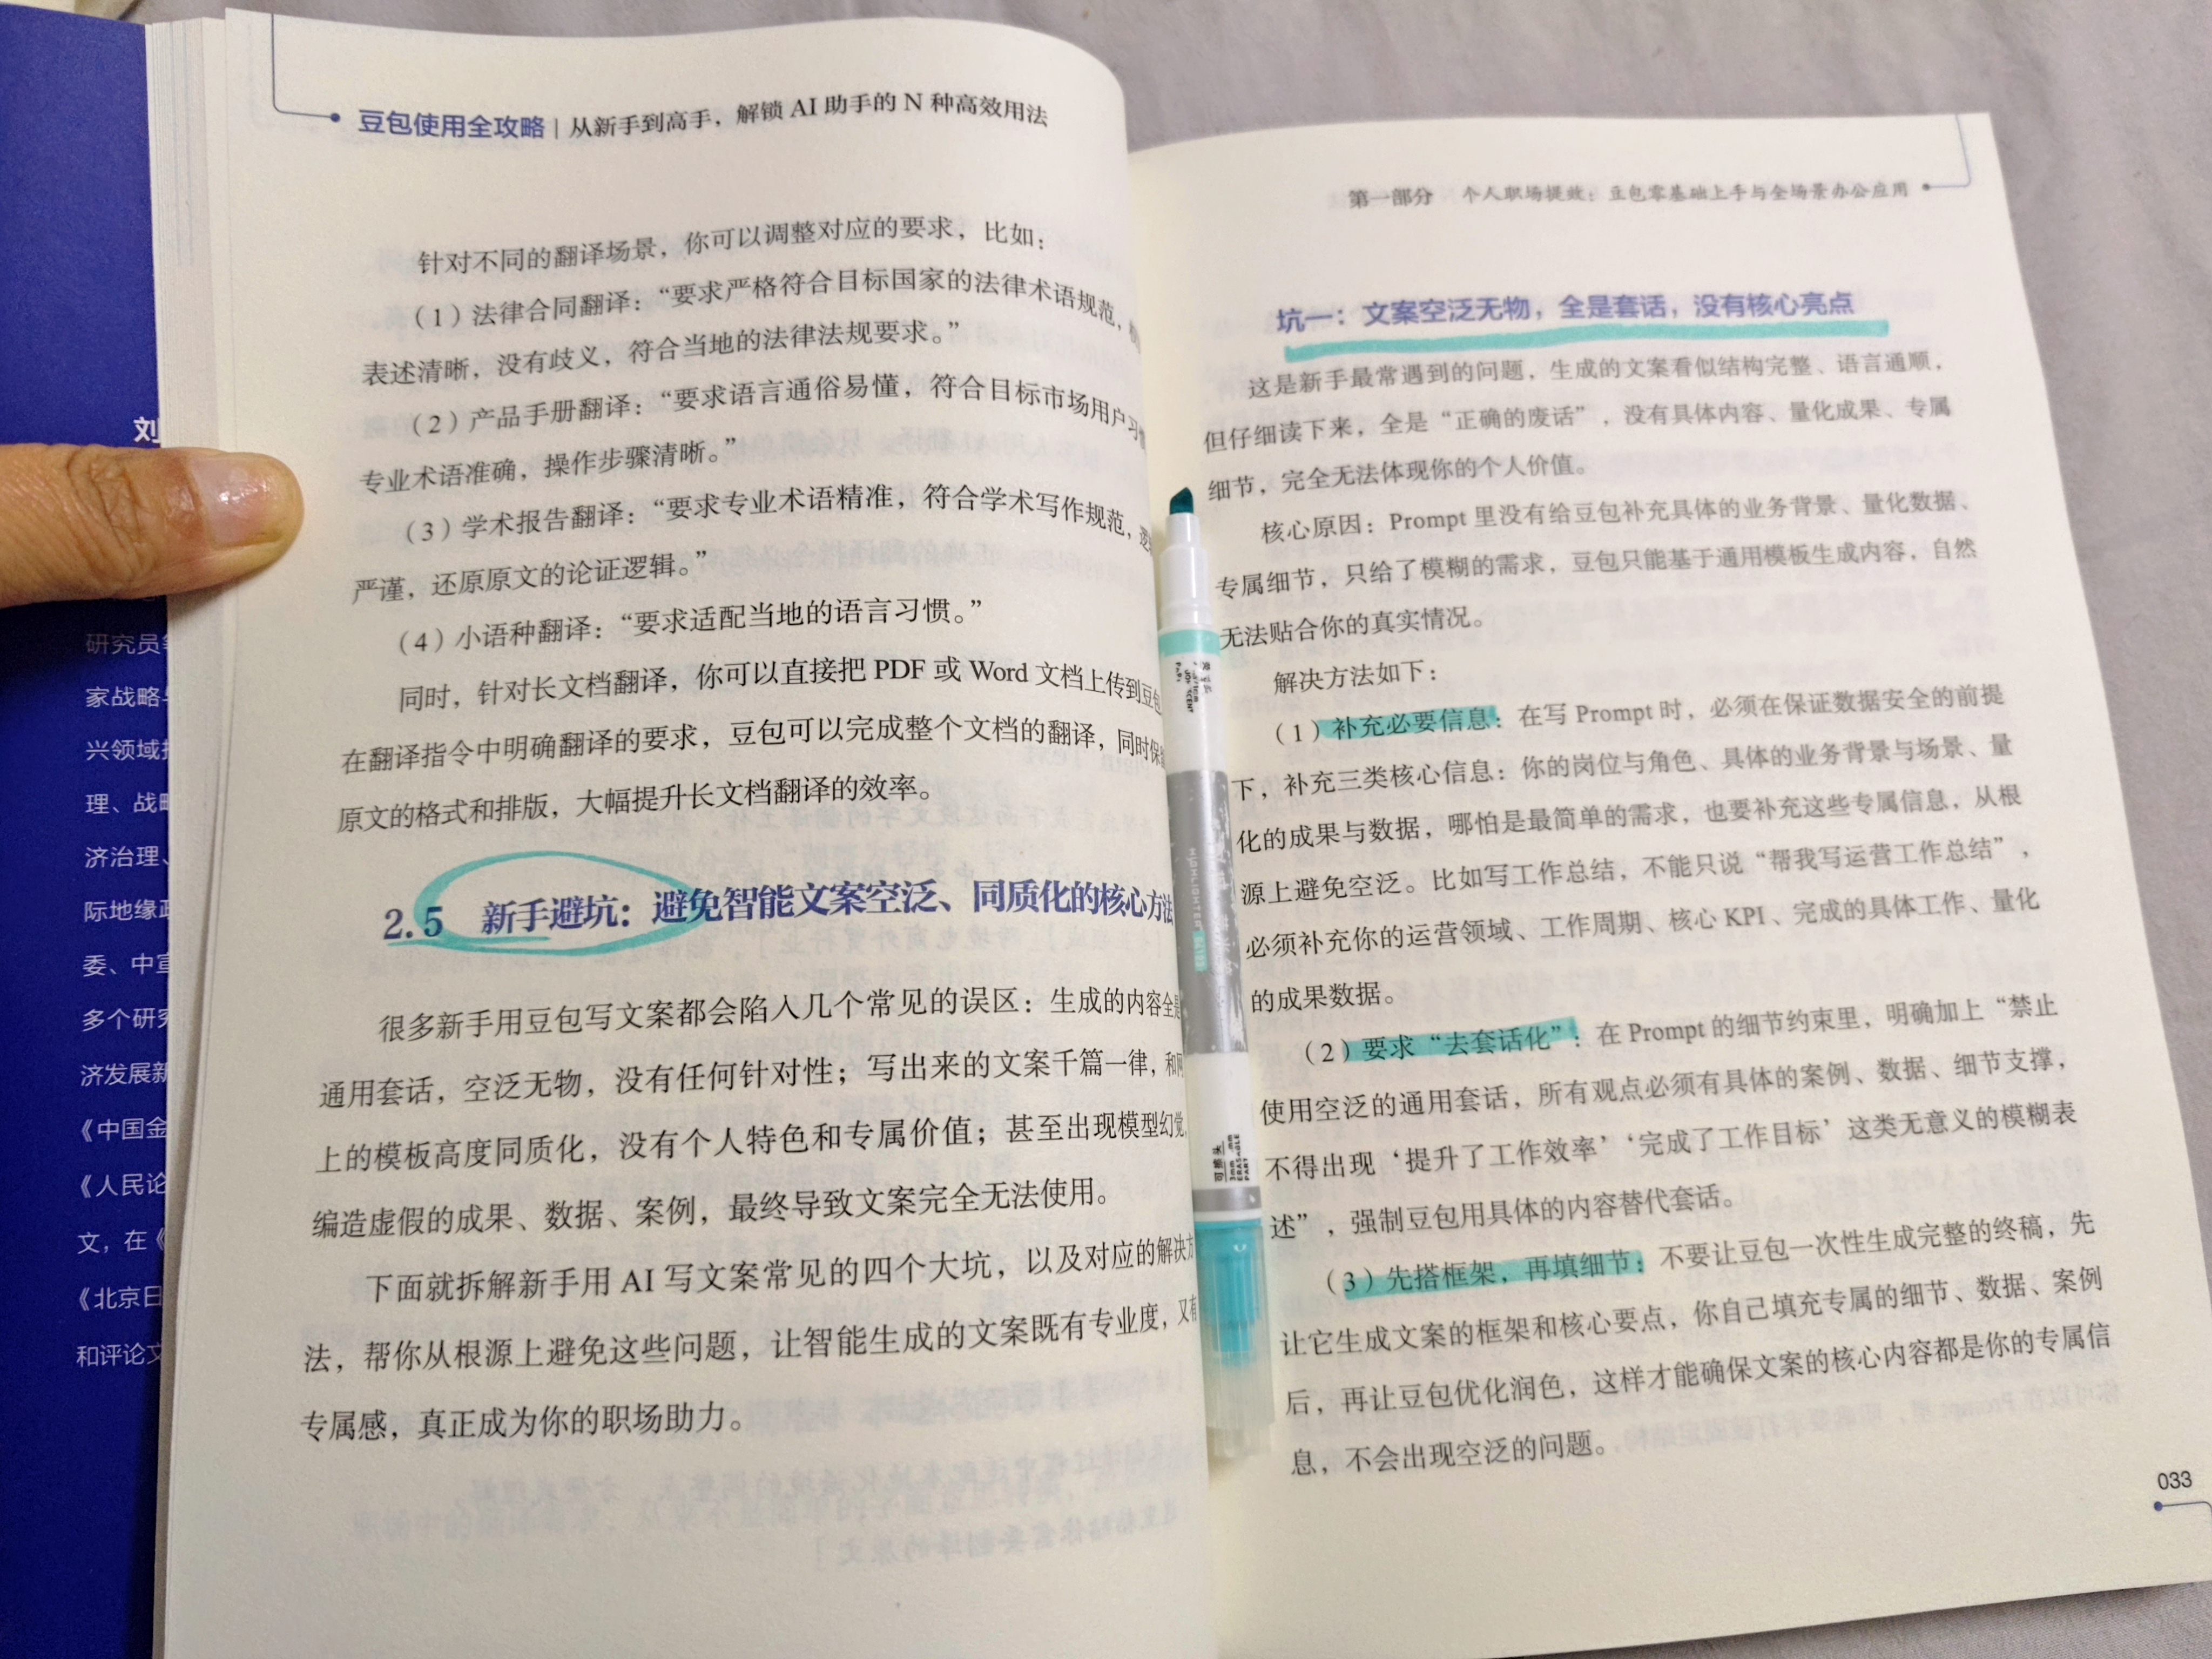 豆包使用全攻略 | 从新手到高手，解锁 AI 助手的 N 种高效用法
针对不同的翻译场景，你可以调整对应的要求，比如：
（1）法律合同翻译：“要求严格符合目标国家的法律术语规范，
表述清晰，没有歧义，符合当地的法律法规要求。”
（2）产品手册翻译：“要求语言通俗易懂，符合目标市场用户习
专业术语准确，操作步骤清晰。”
（3）学术报告翻译：“要求专业术语精准，符合学术写作规范，
严谨，还原原文的论证逻辑。”
（4）小语种翻译：“要求适配当地的语言习惯。”
同时，针对长文档翻译，你可以直接把 PDF 或 Word 文档上传到豆包
在翻译指令中明确翻译的要求，豆包可以完成整个文档的翻译，同时保
原文的格式和排版，大幅提升长文档翻译的效率。
2.5 新手避坑：避免智能文案空泛、同质化的核心方法
很多新手用豆包写文案都会陷入几个常见的误区：生成的内容全是
通用套话，空泛无物，没有任何针对性；写出来的文案千篇一律，和网
上的模板高度同质化，没有个人特色和专属价值；甚至出现模型幻觉，
编造虚假的成果、数据、案例，最终导致文案完全无法使用。
下面就拆解新手用 AI 写文案常见的四个大坑，以及对应的解决方
法，帮你从根源上避免这些问题，让智能生成的文案既有专业度，又有
专属感，真正成为你的职场助力。
刘
研究员
家战略
兴领域
理、战略
济治理、
际地缘政
委、中宣
多个研究
济发展新
《中国金
《人民论
文，在《
《北京日
和评论文
第一部分 个人职场提效：豆包零基础上手与全场景办公应用
坑一：文案空泛无物，全是套话，没有核心亮点
这是新手最常遇到的问题，生成的文案看似结构完整、语言通顺，
但仔细读下来，全是“正确的废话”，没有具体内容、量化成果、专属
细节，完全无法体现你的个人价值。
核心原因：Prompt 里没有给豆包补充具体的业务背景、量化数据、
专属细节，只给了模糊的需求，豆包只能基于通用模板生成内容，自然
无法贴合你的真实情况。
解决方法如下：
（1）补充必要信息：在写 Prompt 时，必须在保证数据安全的前提
下，补充三类核心信息：你的岗位与角色、具体的业务背景与场景、量
化的成果与数据，哪怕是最简单的需求，也要补充这些专属信息，从根
源上避免空泛。比如写工作总结，不能只说“帮我写运营工作总结”，
必须补充你的运营领域、工作周期、核心 KPI、完成的具体工作、量化
的成果数据。
（2）要求“去套话化”：在 Prompt 的细节约束里，明确加上“禁止
使用空泛的通用套话，所有观点必须有具体的案例、数据、细节支撑，
不得出现‘提升了工作效率’‘完成了工作目标’这类无意义的模糊表
述”，强制豆包用具体的内容替代套话。
（3）先搭框架，再填细节：不要让豆包一次性生成完整的终稿，先
让它生成文案的框架和核心要点，你自己填充专属的细节、数据、案例
后，再让豆包优化润色，这样才能确保文案的核心内容都是你的专属信
息，不会出现空泛的问题。
033